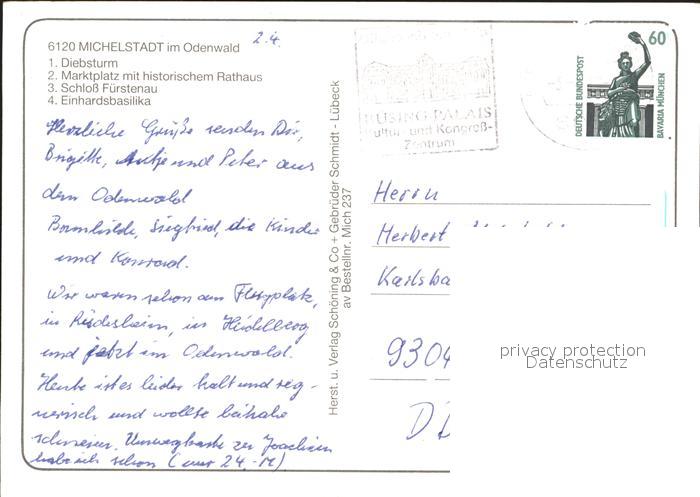 6120 MICHELSTADT im Odenwald
2.4.
1. Diebsturm
2. Marktplatz mit historischem Rathaus
3. Schloß Fürstenau
4. Einhardsbasilika
Herzliche Grüße senden Dir,
Brigitte, Antje und Peter aus
dem Odenwald
Siegfried, die Kinder
und Konrad.
Wir waren schon am
in Rüdesheim, in Heidelberg
und jetzt im Odenwald.
Heute ist es leider kalt und reg-
nerisch und wollte beinahe
schneien. zu Joachim
habe ich schon (nur 24,-M)
Herst. u. Verlag Schöning & Co + Gebrüder Schmidt - Lübeck
av Bestellnr. Mich 237
BÜSING-PALAIS
Kultur- und Kongreß-
Zentrum
60
DEUTSCHE BUNDESPOST
BAVARIA MÜNCHEN
Herrn
Herbert
Karlsba
9304
D
privacy protection
Datenschutz